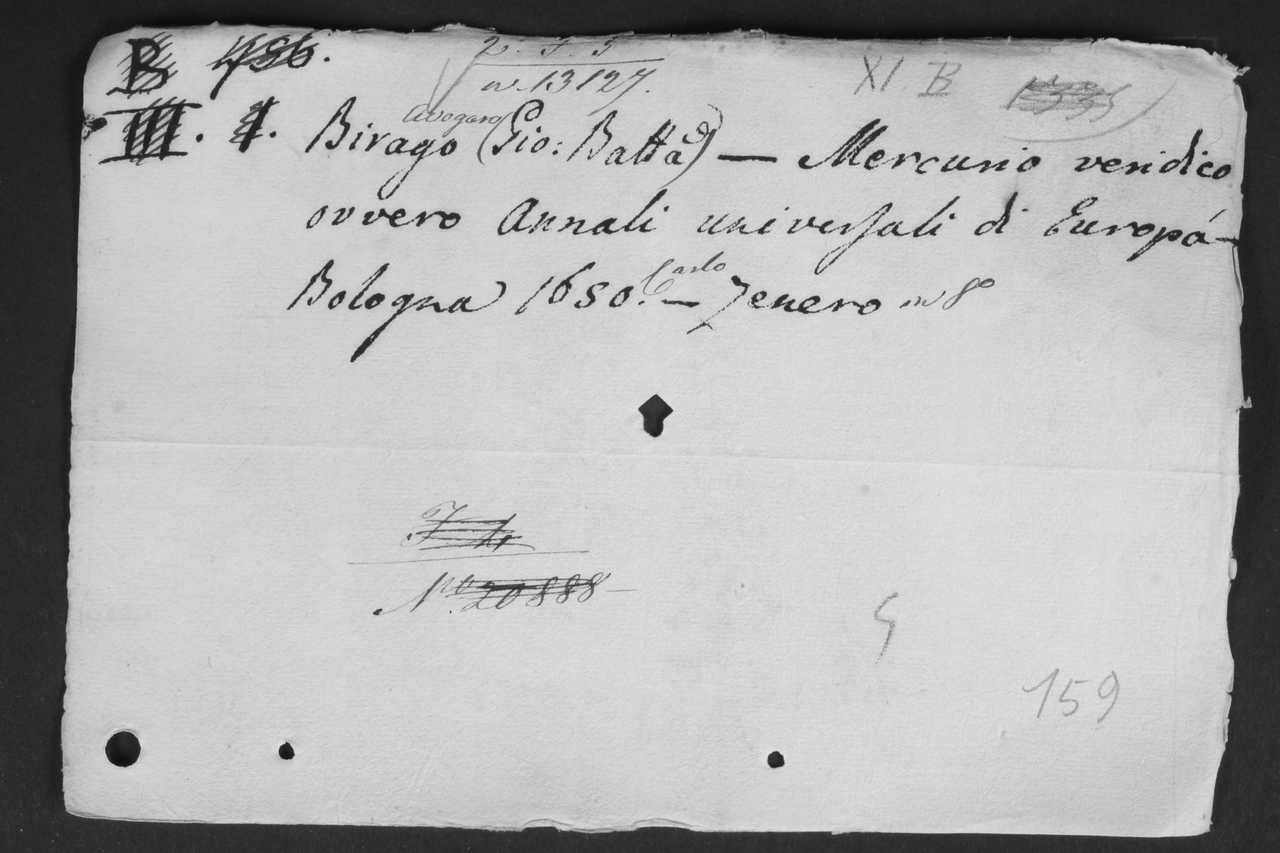 B 486. 2. F. 5 XI B 1335
nº. 13127.
III. 4. Birago Avogaro (Gio: Batta) — Mercurio veridico
ovvero Annali universali di Europa —
Bologna 1650. — Carlo Zenero in 8º
Nº 20888 —
5
159